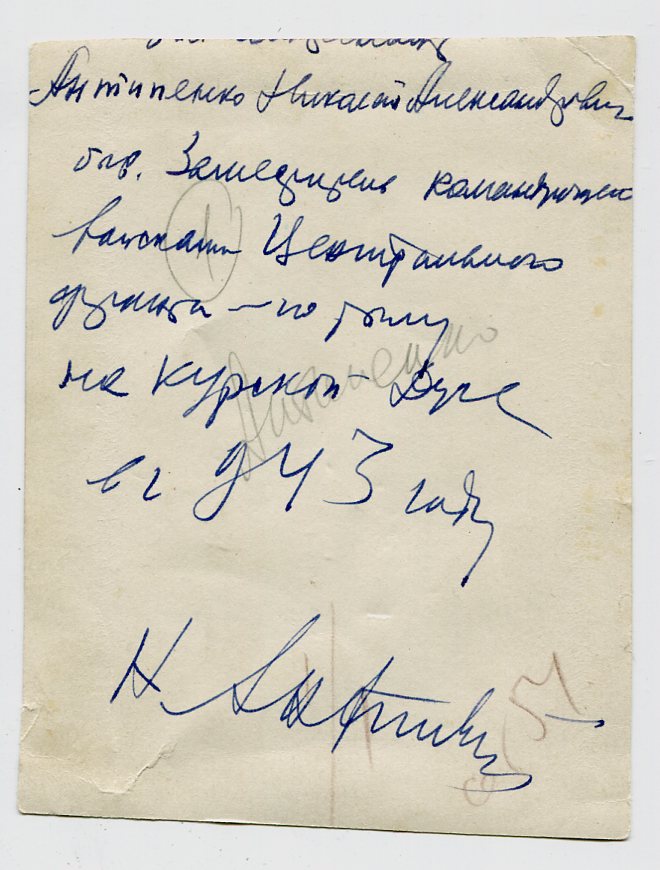 Антипенко Николай Александрович
быв. Заместитель командующего
войсками Центрального
фронта — по тылу
на Курской Дуге
в 1943 году
Антипенко
Н. Антипенко